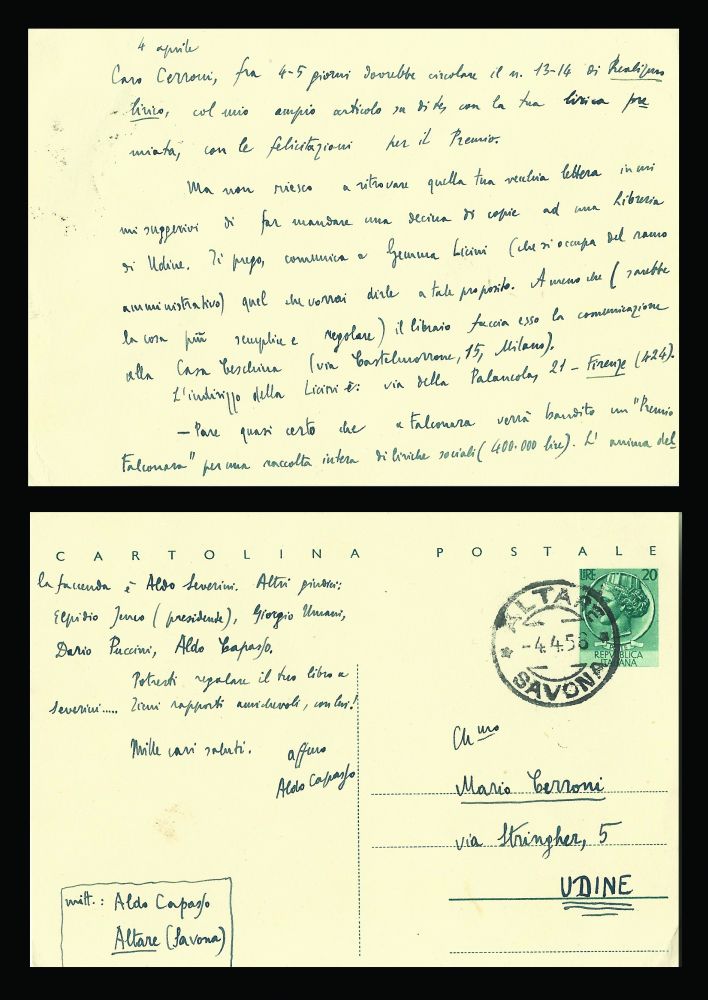 4 aprile
Caro Cerroni, fra 4-5 giorni dovrebbe circolare il n. 13-14 di Realismo
lirico, col mio ampio articolo su di te, con la tua lirica pre
miata, con le felicitazioni per il Premio.
Ma non riesco a ritrovare quella tua vecchia lettera in cui
mi suggerivi di far mandare una decina di copie ad una Libreria
di Udine. Ti prego, comunica a Gemma Licini (che si occupa del ramo
amministrativo) quel che vorrai dirle a tale proposito. A meno che (sarebbe
la cosa più semplice e regolare) il libraio faccia esso la comunicazione
alla Casa Ceschina (via Castelmorrone, 15, Milano).
L'indirizzo della Licini è: via della Palancola, 21 - Firenze (424).
— Pare quasi certo che a Falconara verrà bandito un "Premio
Falconara" per una raccolta intera di liriche sociali (400.000 lire). L'anima del
CARTOLINA POSTALE
la faccenda è Aldo Severini. Altri giudici:
Elpidio Jenco (presidente), Giorgio Umani,
Dario Puccini, Aldo Capasso.
Potresti regalare il tuo libro a
Severini..... Tieni rapporti amichevoli, con lui!
Mille cari saluti.
aff.mo
Aldo Capasso
mitt.: Aldo Capasso
Altare (Savona)
LIRE 20
REPVBBLICA
ITALIANA
ALTARE
-4.4.56
SAVONA
Ch.mo
Mario Cerroni
via Stringher, 5
UDINE